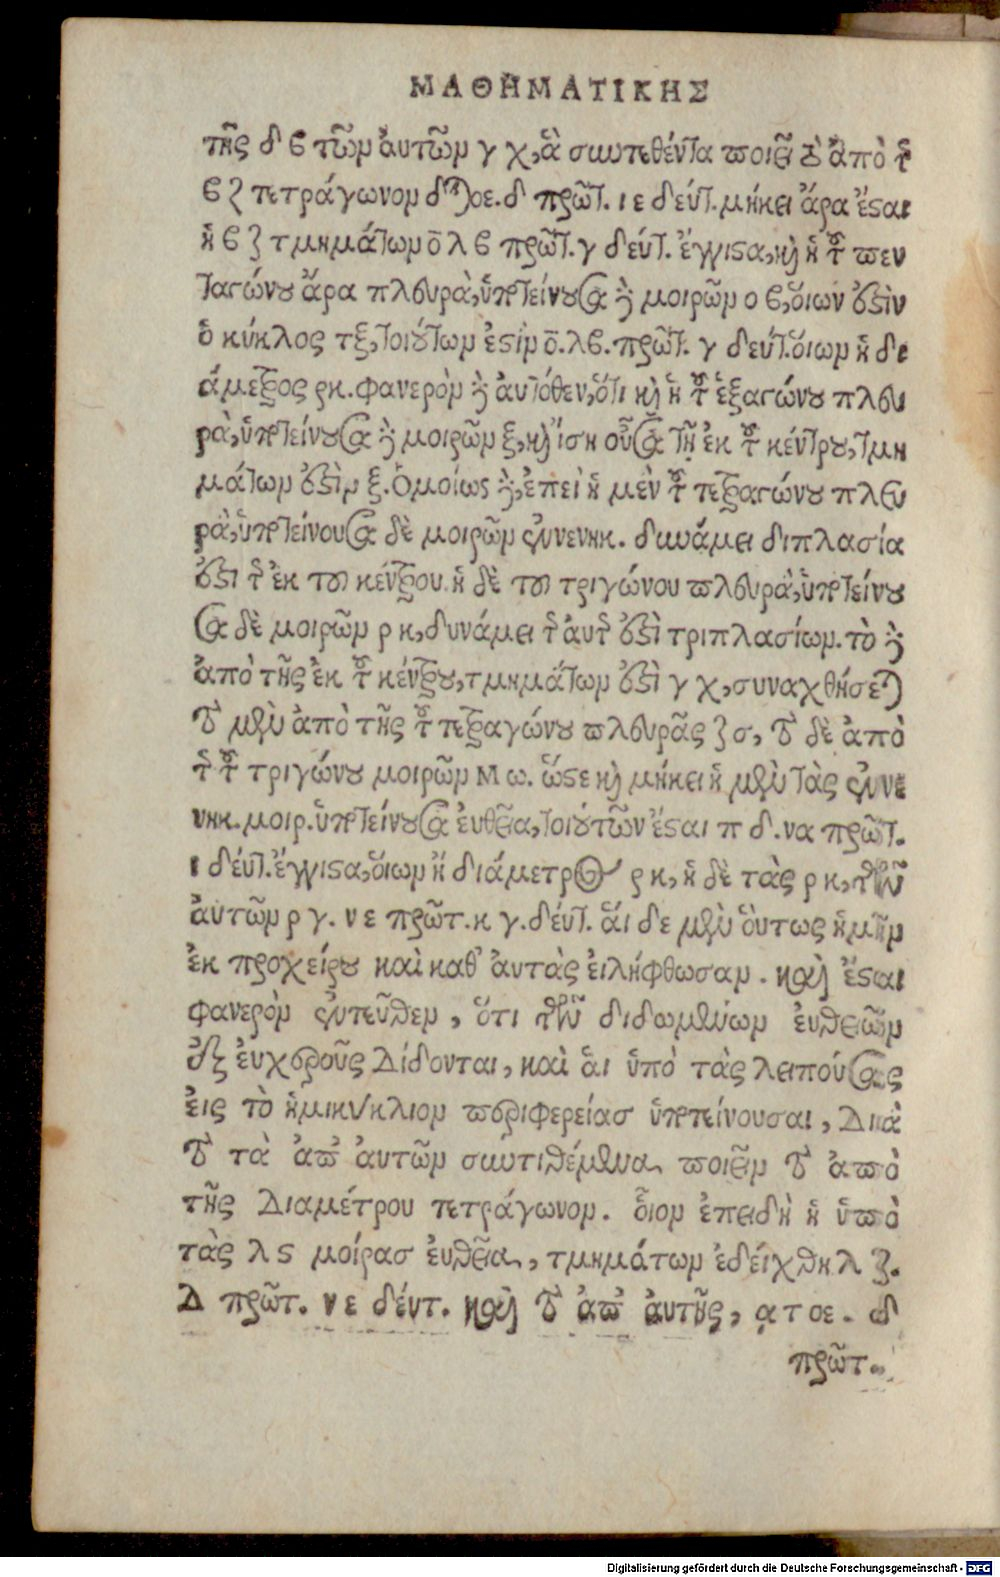 ΜΑΘΗΜΑΤΙΚΗΣ
τῆς δ β τῶν ἀυτῶν γ χ, ἃ συντεθέντα ποιεῖ τὸ ἀπὸ τῆς
β ζ τετράγωνον δ οε. δ πρῶτ. ι ε δέυτ. μήκει ἄρα ἔσαι
ἡ β ζ τμημάτων ὁ λ β πρῶτ. γ δέυτ. ἔγγιστα, καὶ ἡ τοῦ πεν
ταγώνου ἄρα πλευρὰ, ὑποτείνουσα δὲ μοιρῶν ο β, ὅιων ἐστὶν
ὁ κύκλος τξ, τοιούτων ἐστὶν ο. λβ. πρῶτ. γ δέυτ. ὅιων ἡ δι
άμετρος ρκ. φανερὸν δὲ ἀυτόθεν, ὅτι καὶ ἡ τοῦ ἑξαγώνου πλευ
ρὰ, ὑποτείνουσα δὲ μοιρῶν ξ, καὶ ἴση οὖσα τῇ ἐκ τοῦ κέντρου, τμη
μάτων ἐστὶν ξ. Ὁμοίως δὲ, ἐπεὶ ἡ μὲν τοῦ τετραγώνου πλευ
ρὰ, ὑποτείνουσα δὲ μοιρῶν ἐννενηκ. δυνάμει διπλασία
ἐστὶ τῆς ἐκ τοῦ κέντρου. ἡ δὲ τοῦ τριγώνου πλευρὰ, ὑποτείνου
σα δὲ μοιρῶν ρ κ, δυνάμει τῆς ἀυτῆς ἐστὶ τριπλασίων. τὸ δὲ
ἀπὸ τῆς ἐκ τοῦ κέντρου, τμημάτων ἐστὶ γ χ, συναχθήσεται
τὸ μὲν ἀπὸ τῆς τοῦ τετραγώνου πλευρᾶς ζ σ, τὸ δὲ ἀπὸ
τῆς τοῦ τριγώνου μοιρῶν Μ ω. ὥστε καὶ μήκει ἡ μὲν τὰς ἐννε
νηκ. μοιρ. ὑποτείνουσα ἐυθεῖα, τοιούτων ἔσαι π δ. να πρῶτ.
ι δέυτ. ἔγγιστα, ὅιων ἡ διάμετρος ρ κ, ἡ δὲ τὰς ρ κ, τῶν
ἀυτῶν ρ γ. ν ε πρῶτ. κ γ. δέυτ. ἅι δε μὲν ὅυτως ἡμῖν
ἐκ προχείρου καὶ καθ' ἀυτὰς ἐιλήφθωσαν. καὶ ἔσαι
φανερὸν ἐντεῦθεν, ὅτι τῶν διδομένων ἐυθειῶν
ἐξ ἐυχεροῦς Δίδονται, καὶ ἅι ὑπὸ τὰς λειπούσας
ἐις τὸ ἡμικύκλιον περιφερείασ ὑποτείνουσαι, Διὰ
τὸ τὰ ἀπ' ἀυτῶν συντιθέμενα ποιεῖν τὸ ἀπὸ
τῆς Διαμέτρου τετράγωνον. ὅιον ἐπειδὴ ἡ ὑπὸ
τὰς λ ς μοίρασ ἐυθεῖα, τμημάτων ἐδείχθη λ ζ.
Δ πρῶτ. ν ε δέυτ. καὶ τὸ ἀπ' ἀυτῆς, α τ οε. δ
πρῶτ.
Digitalisierung gefördert durch die Deutsche Forschungsgemeinschaft - DFG